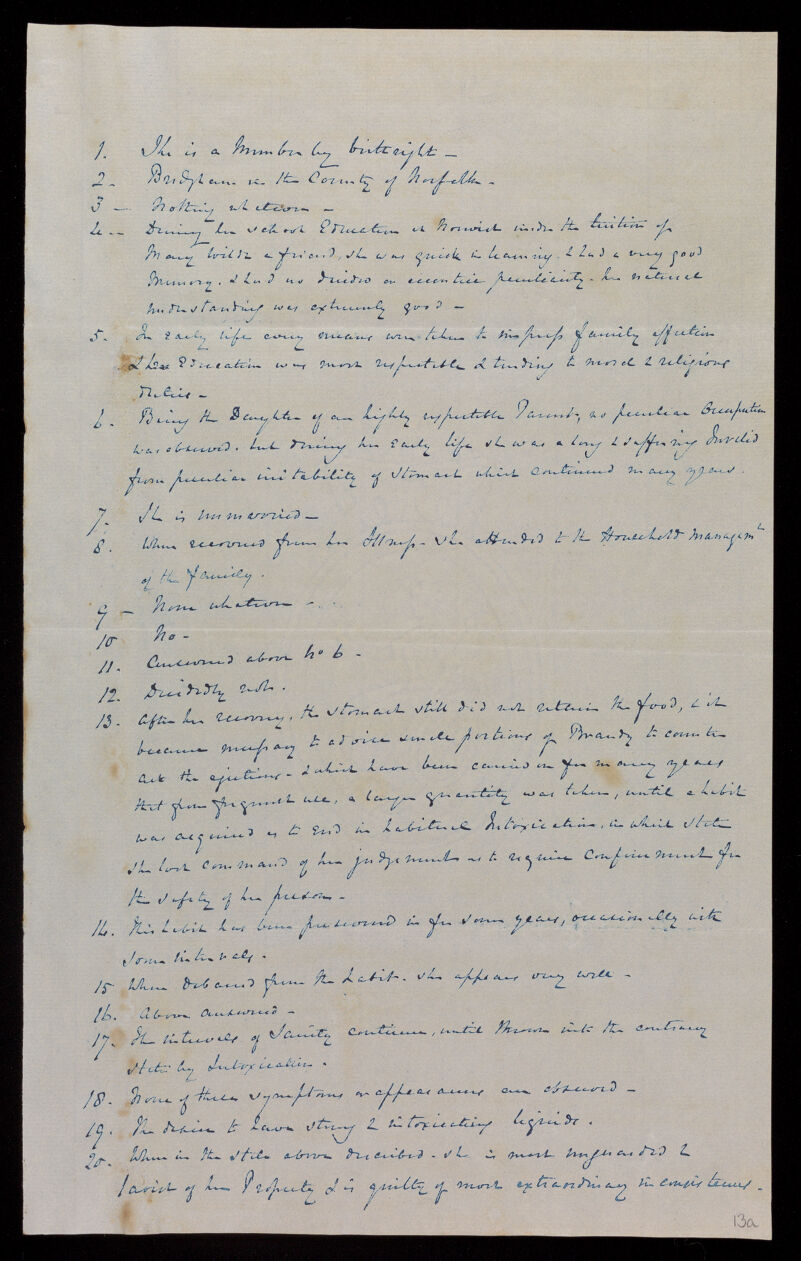 1. She is a Member by birthright —
2 - Bridgham in the County of Norfolk -
3 — Nothing whatever —
4 — During her school Education at Norwich under the tuition of
Mary a friend, she was quick in learning - & had a very good
Memory, & had no or eccentric peculiarity - her natural
understanding was extremely good —
5 - In early life every means were taken to impress family affection
& her Education was most respectable & tending to moral & religious
duties —
6 - Being the Daughter of an highly respectable Parent, no peculiar Occupation
was observed - but during her early life she was a long & suffering Invalid
from peculiar irritability of Stomach which continued many years.
7 - She is unmarried —
8. When recovered from her Illness - she attended to the Household Managemt
of the family.
9 — None whatever —
10 No -
11. Answered above No 6 -
12. Decidedly not.
13. After her recovery, the stomach still did not retain the food, & it
became necessary to advise small portions of Brandy to counter
act the ejections - & which have been carried on for many years
that from frequent use, a larger quantity was taken, until a habit
was acquired as to end in habitual Intoxication, in which state
she lost command of her judgement as to require Confinement for
the safety of her person -
14. This habit has been persevered in for some years, occasionally with
some intervals.
15 When debarred from the habit - she appears very well -
16. Above answered -
17. The intervals of Sanity continue, until thrown into the contrary
state by Intoxication -
18. None of these symptoms or appearances are observed -
19. The desire to have strong & intoxicating liquids.
20. When in the state above described - she is most unguarded &
lavish of her Property & is guilty of most extraordinary inconsistencies -
13a